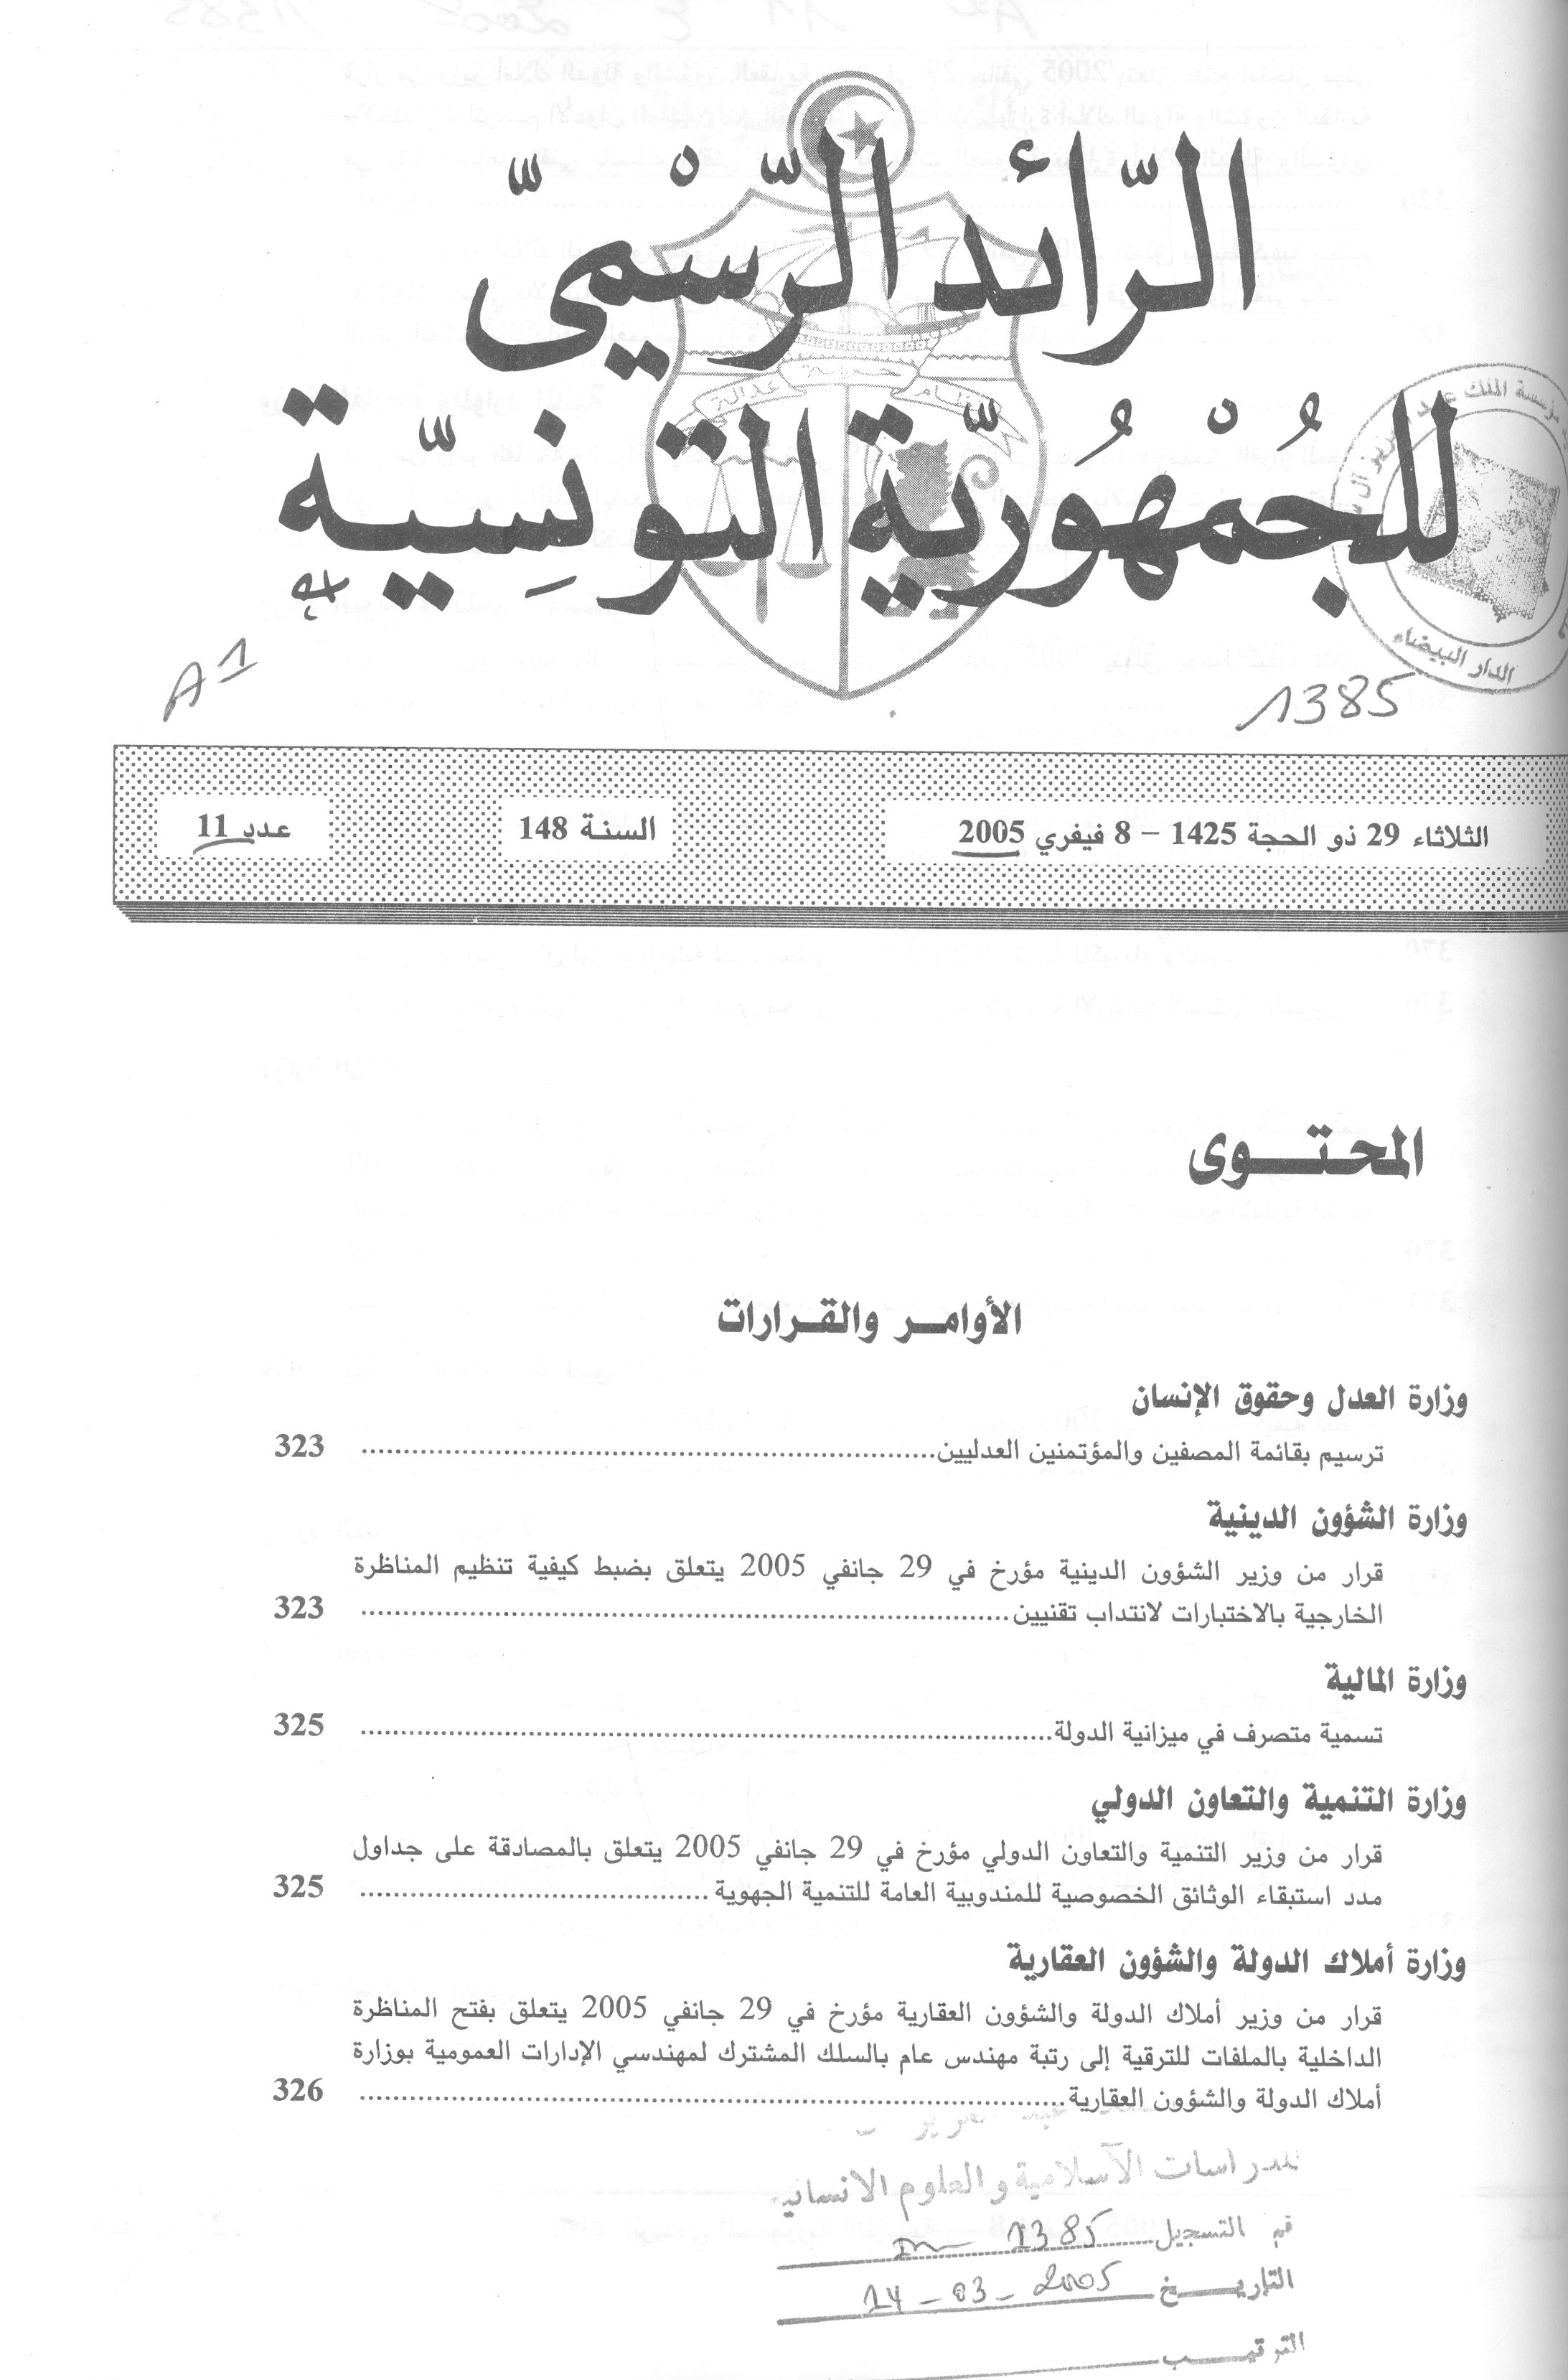 الرّائد الرّسْميّ
نظام حرية عدالة
للجُمْهُوريّة التونسِيّة
الدار البيضاء
A1
1385
الثلاثاء 29 ذو الحجة 1425 – 8 فيفري 2005 السنة 148 عدد 11
المحتوى
الأوامر والقرارات
وزارة العدل وحقوق الإنسان
ترسيم بقائمة المصفين والمؤتمنين العدليين 323
وزارة الشؤون الدينية
قرار من وزير الشؤون الدينية مؤرخ في 29 جانفي 2005 يتعلق بضبط كيفية تنظيم المناظرة
الخارجية بالاختبارات لانتداب تقنيين 323
وزارة المالية
تسمية متصرف في ميزانية الدولة 325
وزارة التنمية والتعاون الدولي
قرار من وزير التنمية والتعاون الدولي مؤرخ في 29 جانفي 2005 يتعلق بالمصادقة على جداول
مدد استبقاء الوثائق الخصوصية للمندوبية العامة للتنمية الجهوية 325
وزارة أملاك الدولة والشؤون العقارية
قرار من وزير أملاك الدولة والشؤون العقارية مؤرخ في 29 جانفي 2005 يتعلق بفتح المناظرة
الداخلية بالملفات للترقية إلى رتبة مهندس عام بالسلك المشترك لمهندسي الإدارات العمومية بوزارة
أملاك الدولة والشؤون العقارية 326
للدراسات الآسلامية والعلوم الانسانية
التسجيل 1385
التاريخ 14 - 03 - 2005
الترتيب